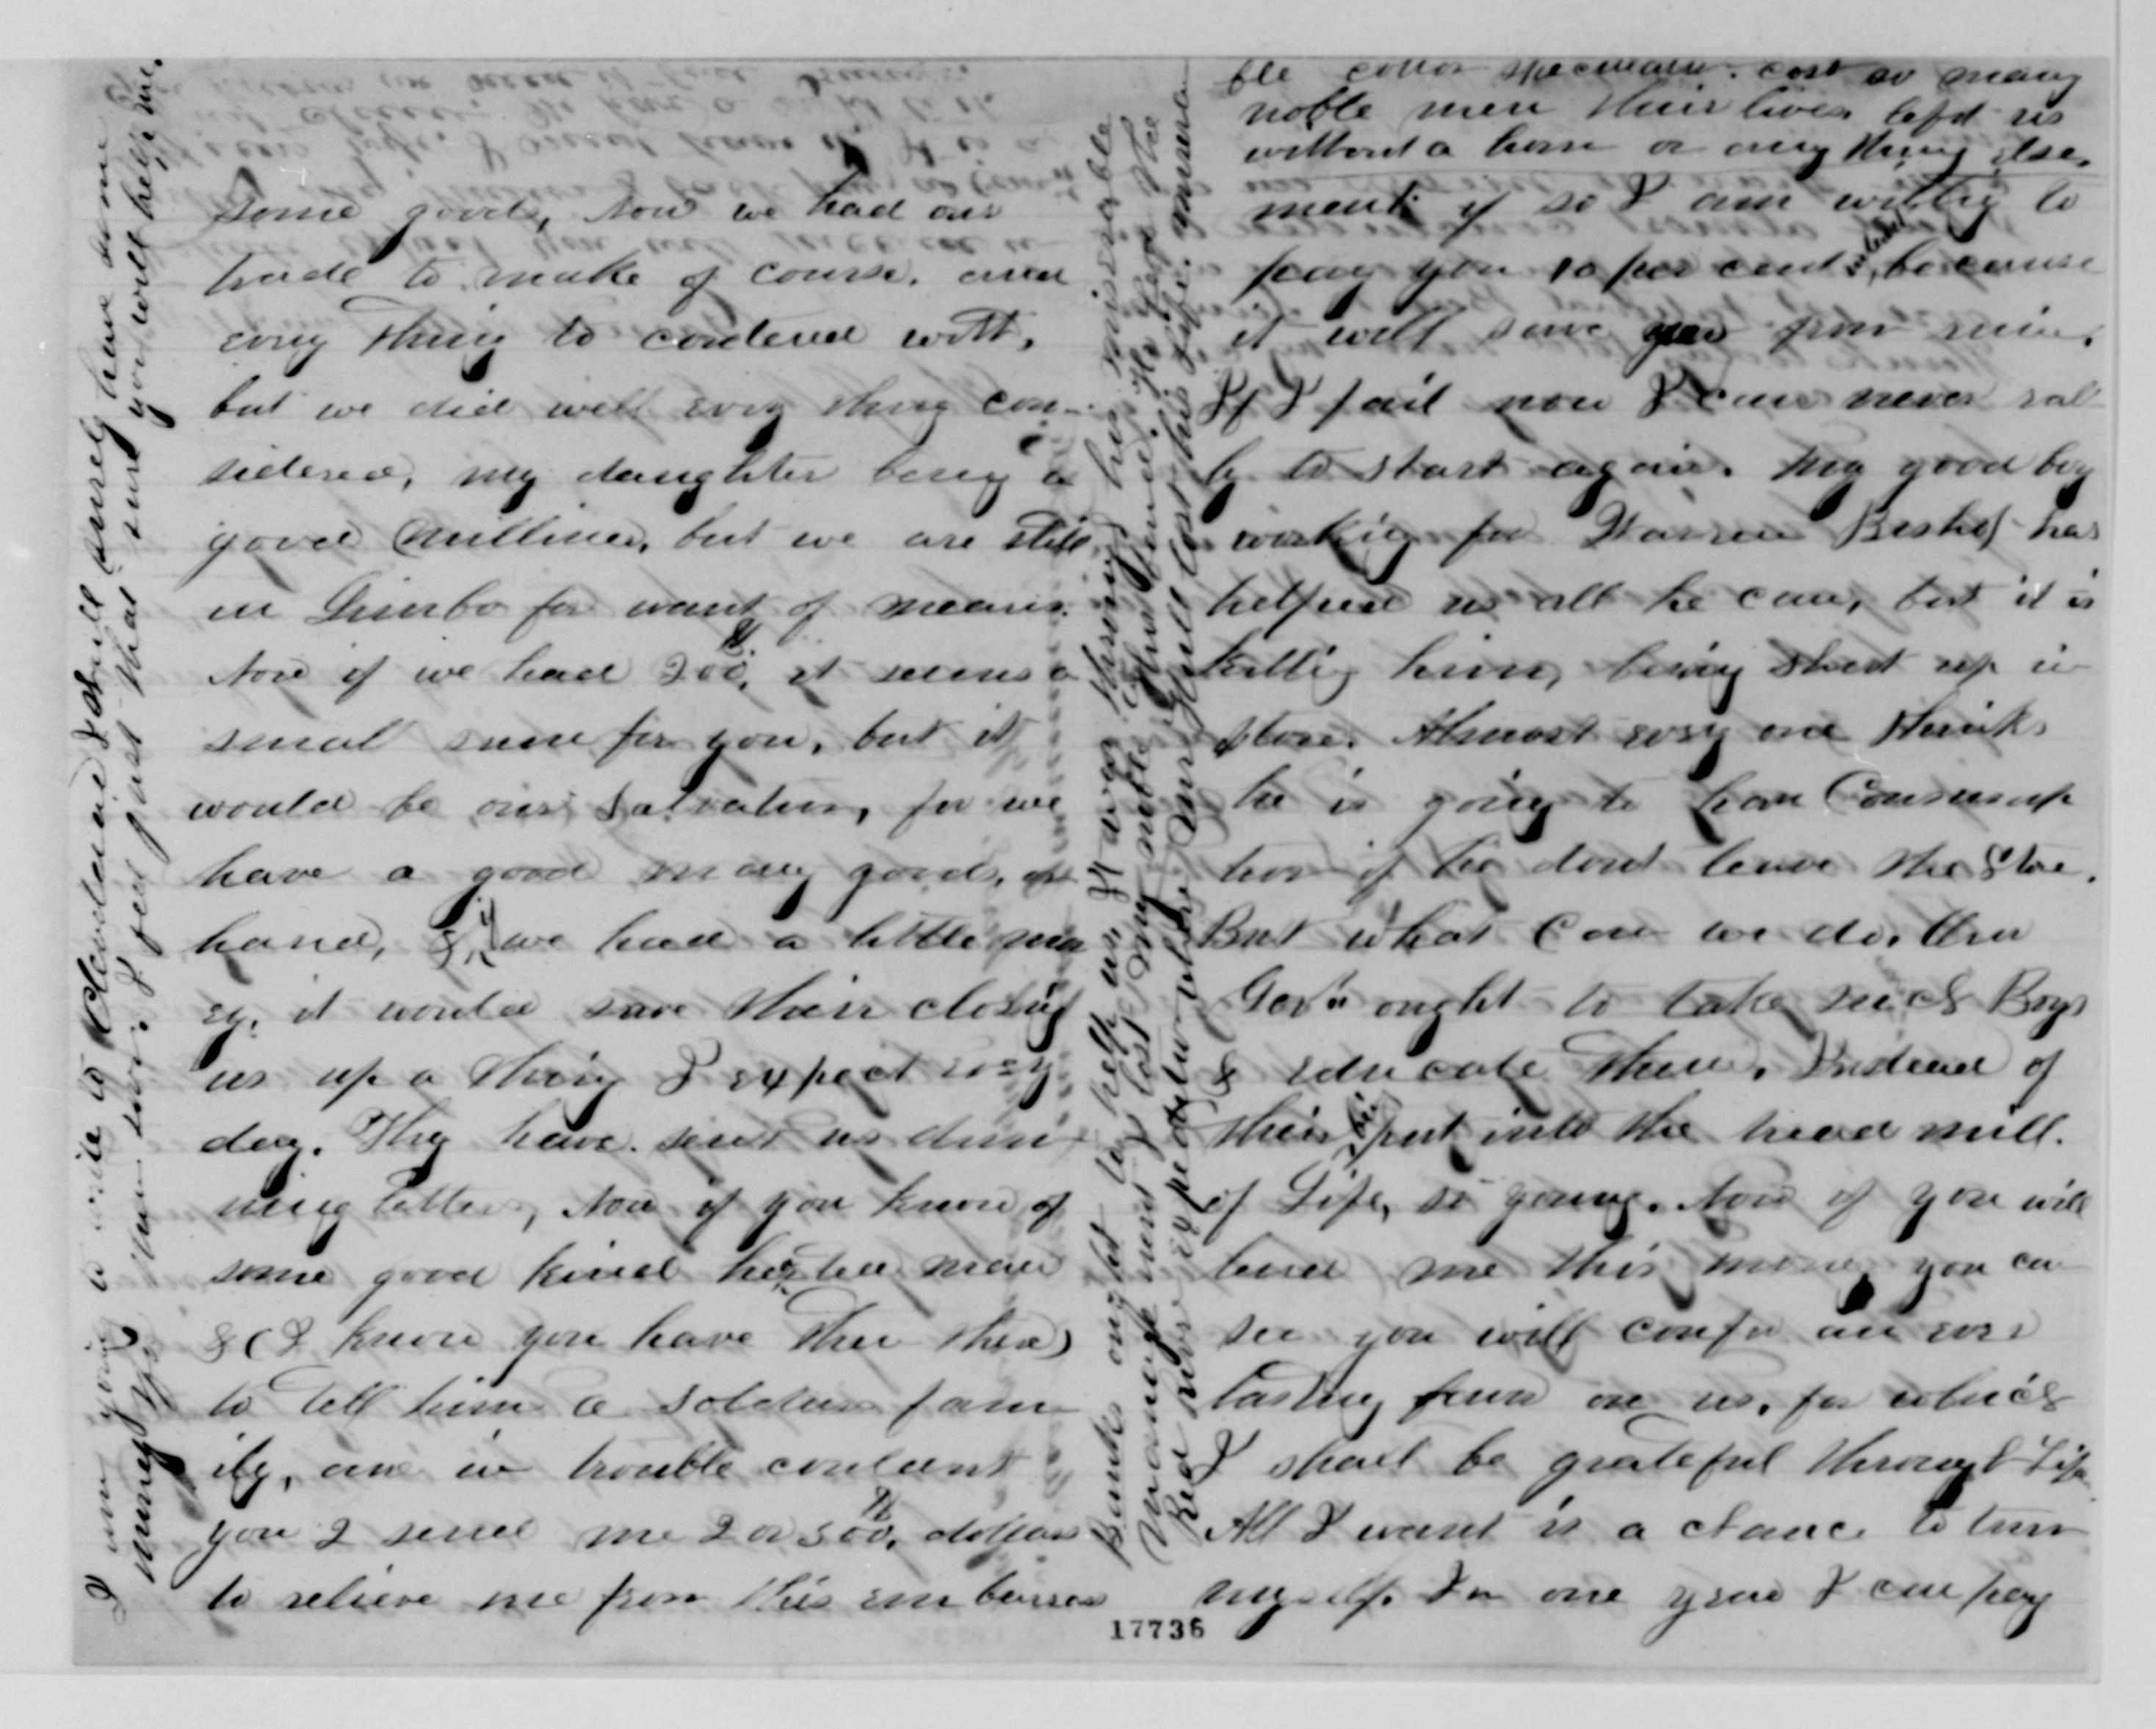 some goods, Now we had our
trade to make of course, and
evry thing to contend with,
but we did well evry thing con-
sidered, my daughter being a
good Milliner, but we are still
in Limbo for want of means.
Now if we had 200, it seems a
small sum for you, but it
would be our Salvation, for we
have a good many goods, on
hand, & if we had a little mon
ey, it would save their closing
us up a thing I expect evry
day. They have sent us dun
ning letters, Now if you know of
some good kind hearted man
& (I know you have them there)
to tell him a soldiers fam
ily, are in trouble couldent
you 2 send me 2 or 300, dollars
to relieve me from this embarrass
ment if so I am willing to
pay you 10 per cent because
it will save you from ruin.
If I fail now I can never ral
ly to start again. My good boy
working for Warren Bishop has
helped us all he can, but it is
killing him, being shut up in
store. Almost evry one thinks
he is going to have Consump
tion if he dont leave the Stoe.
But what Can we do, Our
Govt ought to take such Boys
& educate them, Instead of
their being put into the tread mill.
of Life, so young. Now if you will
lend me this money you can
see you will confer an ever
lasting favor on us, for which
I shall be grateful through Life
All I want is a chance to turn
myself. In one year I can pay
I am going to write to Cleveland I shall surely have some
money from him. I feel just that sure you will help me.
Banks ought to help us, It was through his miserable
management I lost my noble
Red river expedition where Mr Hull lost his life.
ble cotton speculation. cost so many
noble men their lives left us
without a home or any thing else.
17736